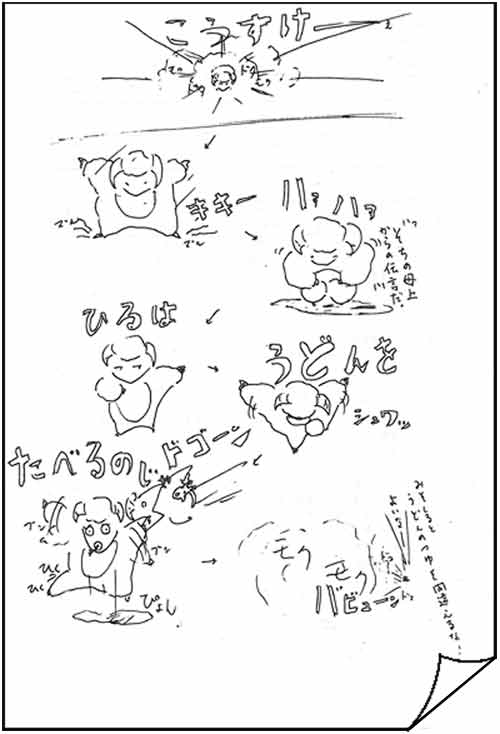 こうすけー
キキー
ハァ ハァ
そちの母上
からの伝言だ。
ひるは
うどんを
シュワッ
たべるのじ
ドゴーン
ブン
ひく
ひく
モク
モク
バビューン
みそしると
うどんのつゆを間違えるな!